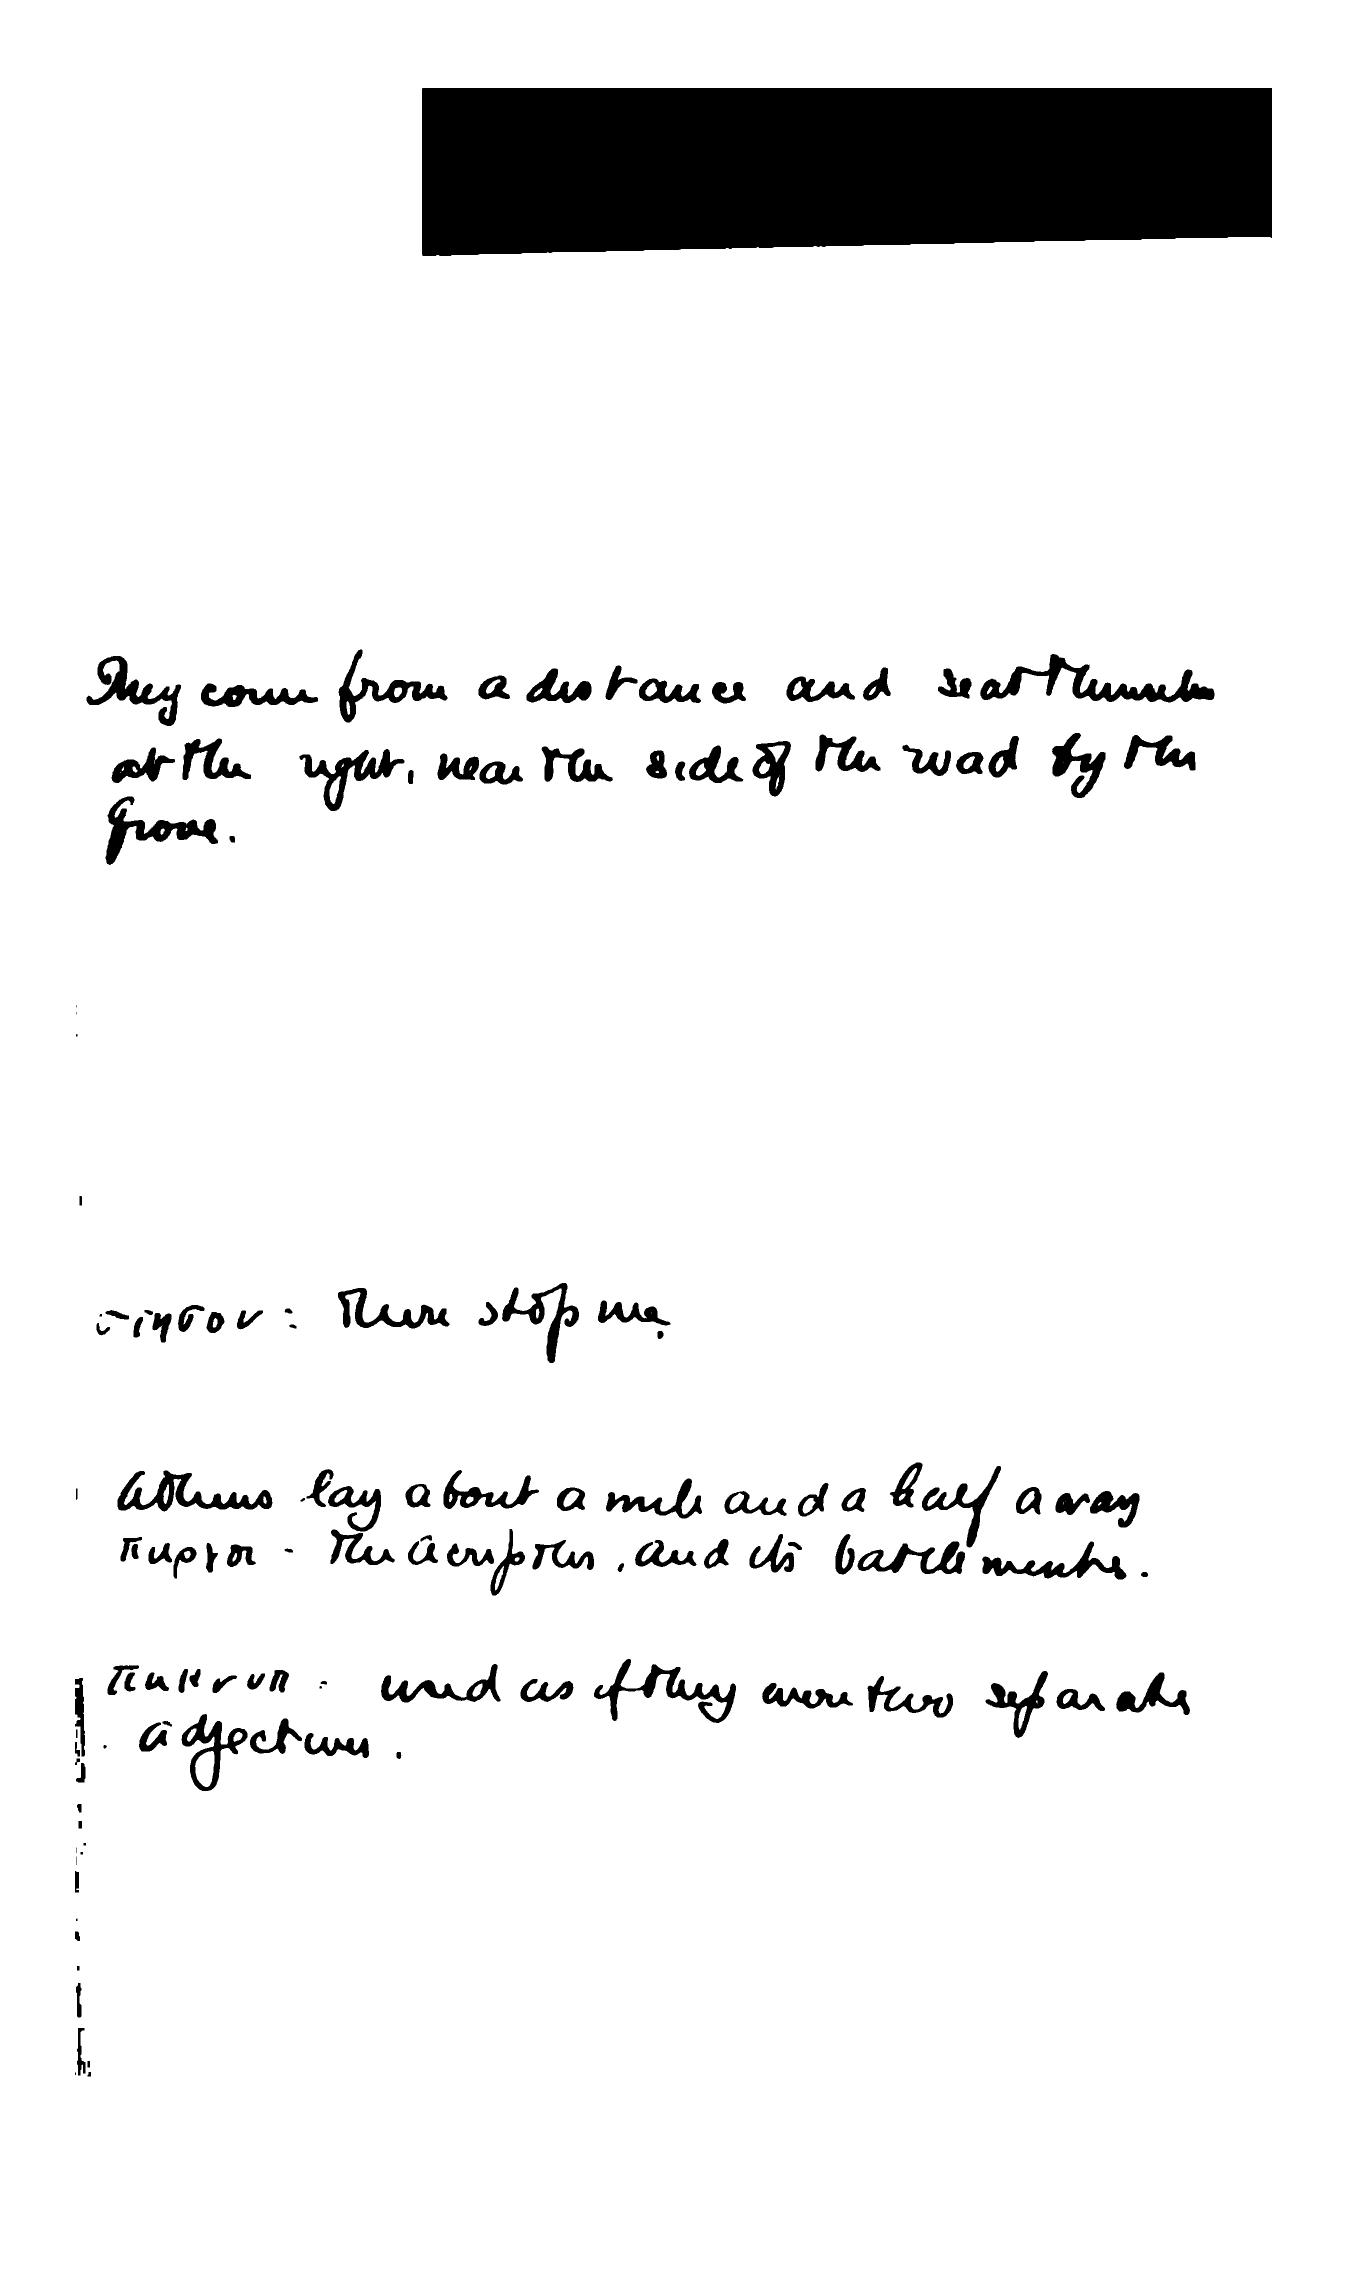 They come from a distance and seat themselves
at the right, near the side of the road by the
grove.
στησον: There stop me.
Athens lay about a mile and a half away
πυργοι - the Acropolis, and its battlements.
πυκνοπ - used as if they were two separate
adjectives.